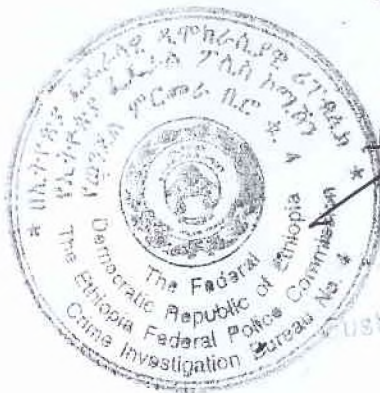 በኢትዮጵያ ፌዴራላዊ ዲሞክራሲያዊ ሪፐብሊክ
የኢትዮጵያ ፌዴራል ፖሊስ ኮሚሽን
የወንጀል ምርመራ ቢሮ ቁ. 4
The Federal
Democratic Republic of Ethiopia
The Ethiopia Federal Police Commission
Crime Investigation Bureau No. 4